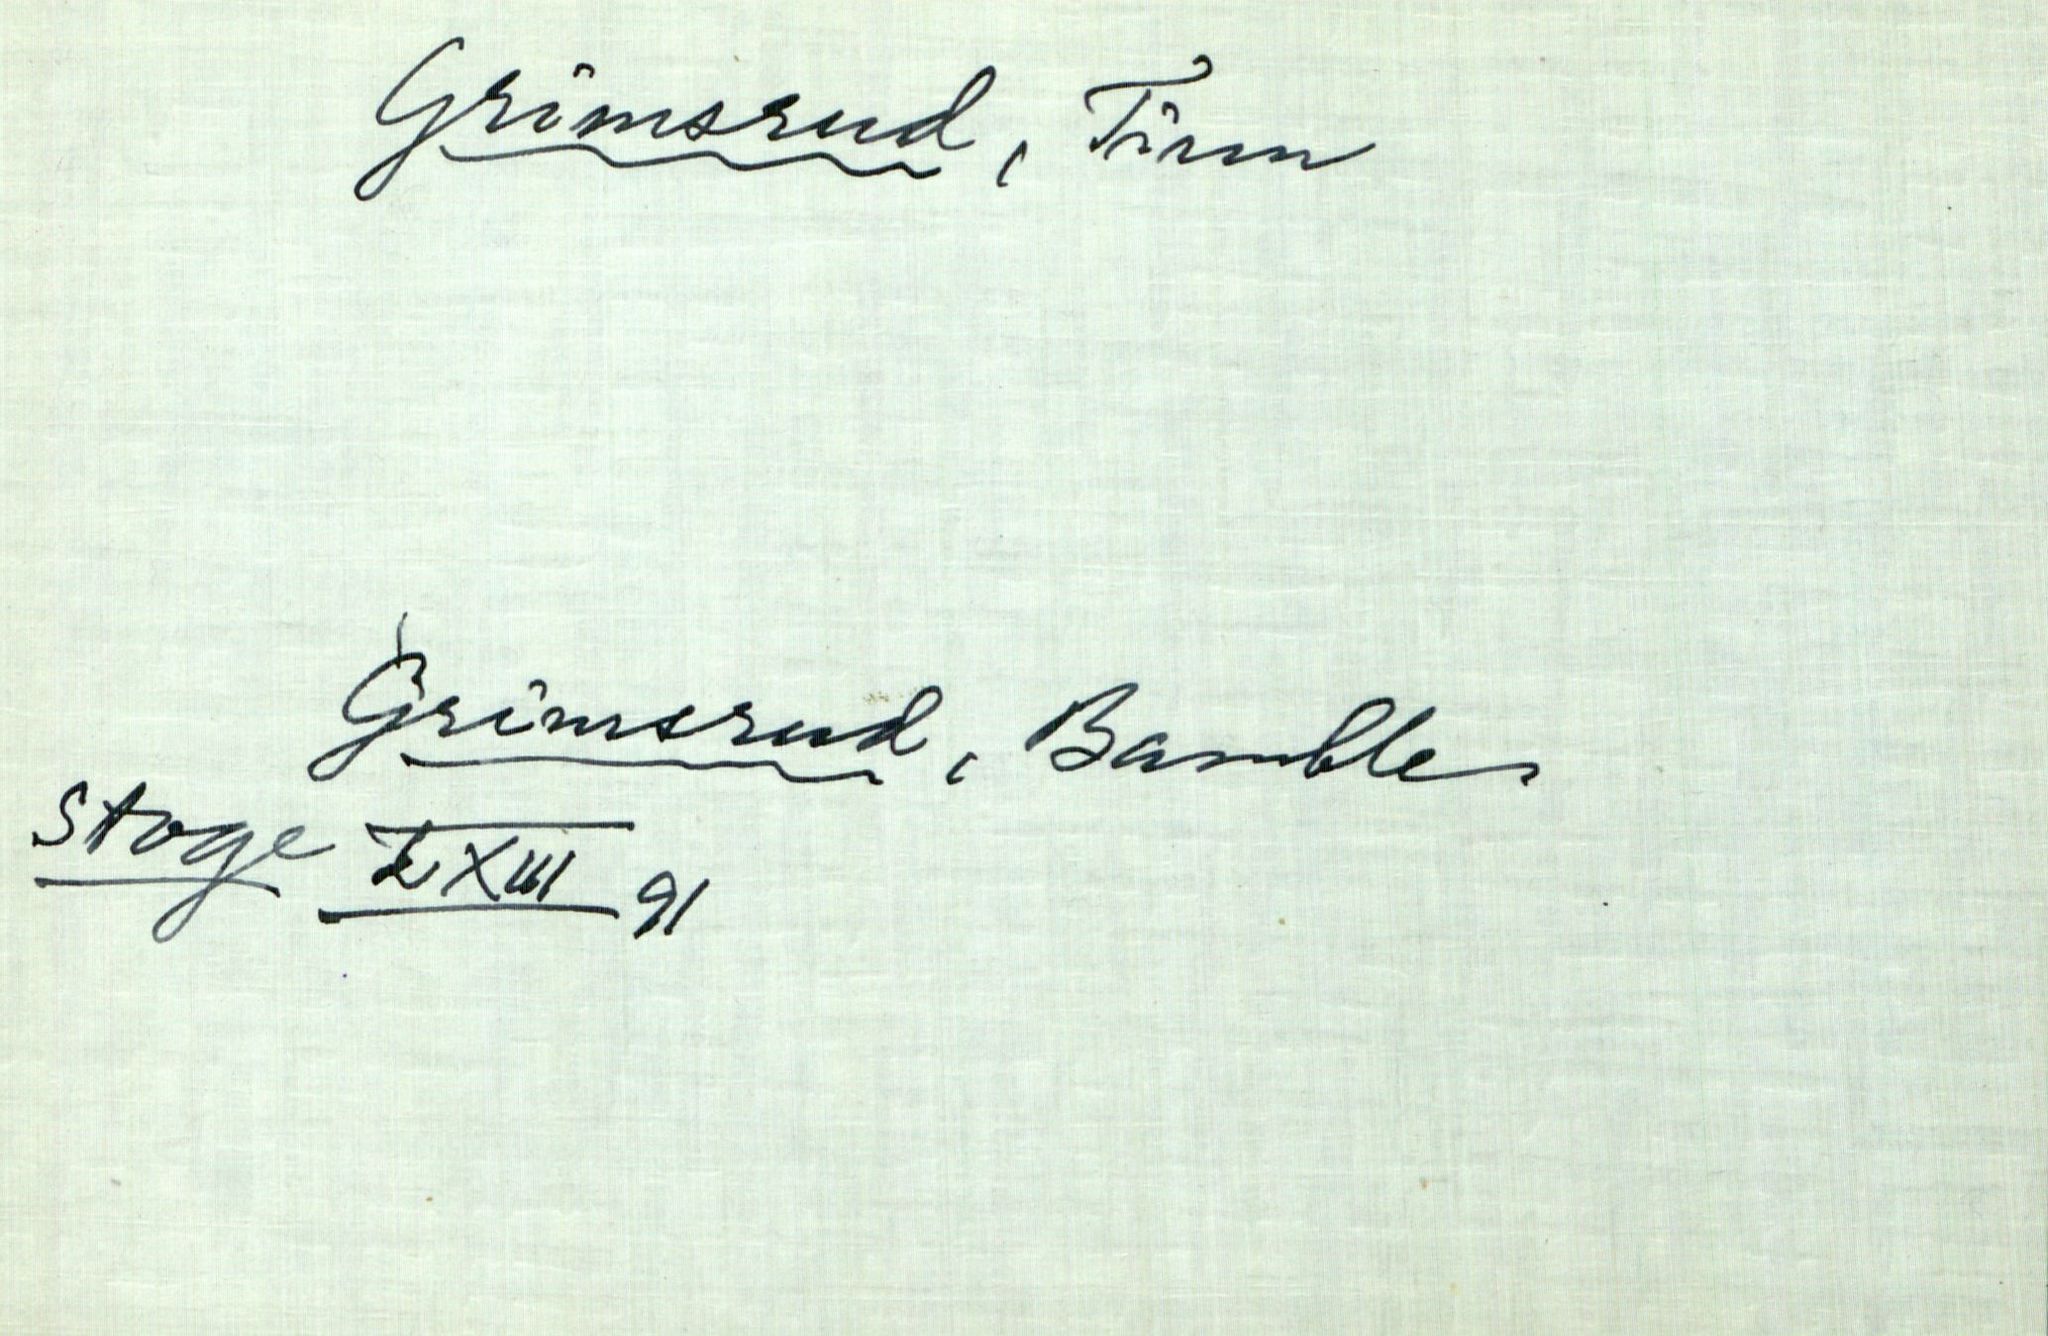 Grimsrud, Tinn
Grimsrud, Bamble
Stoge LXIII 91